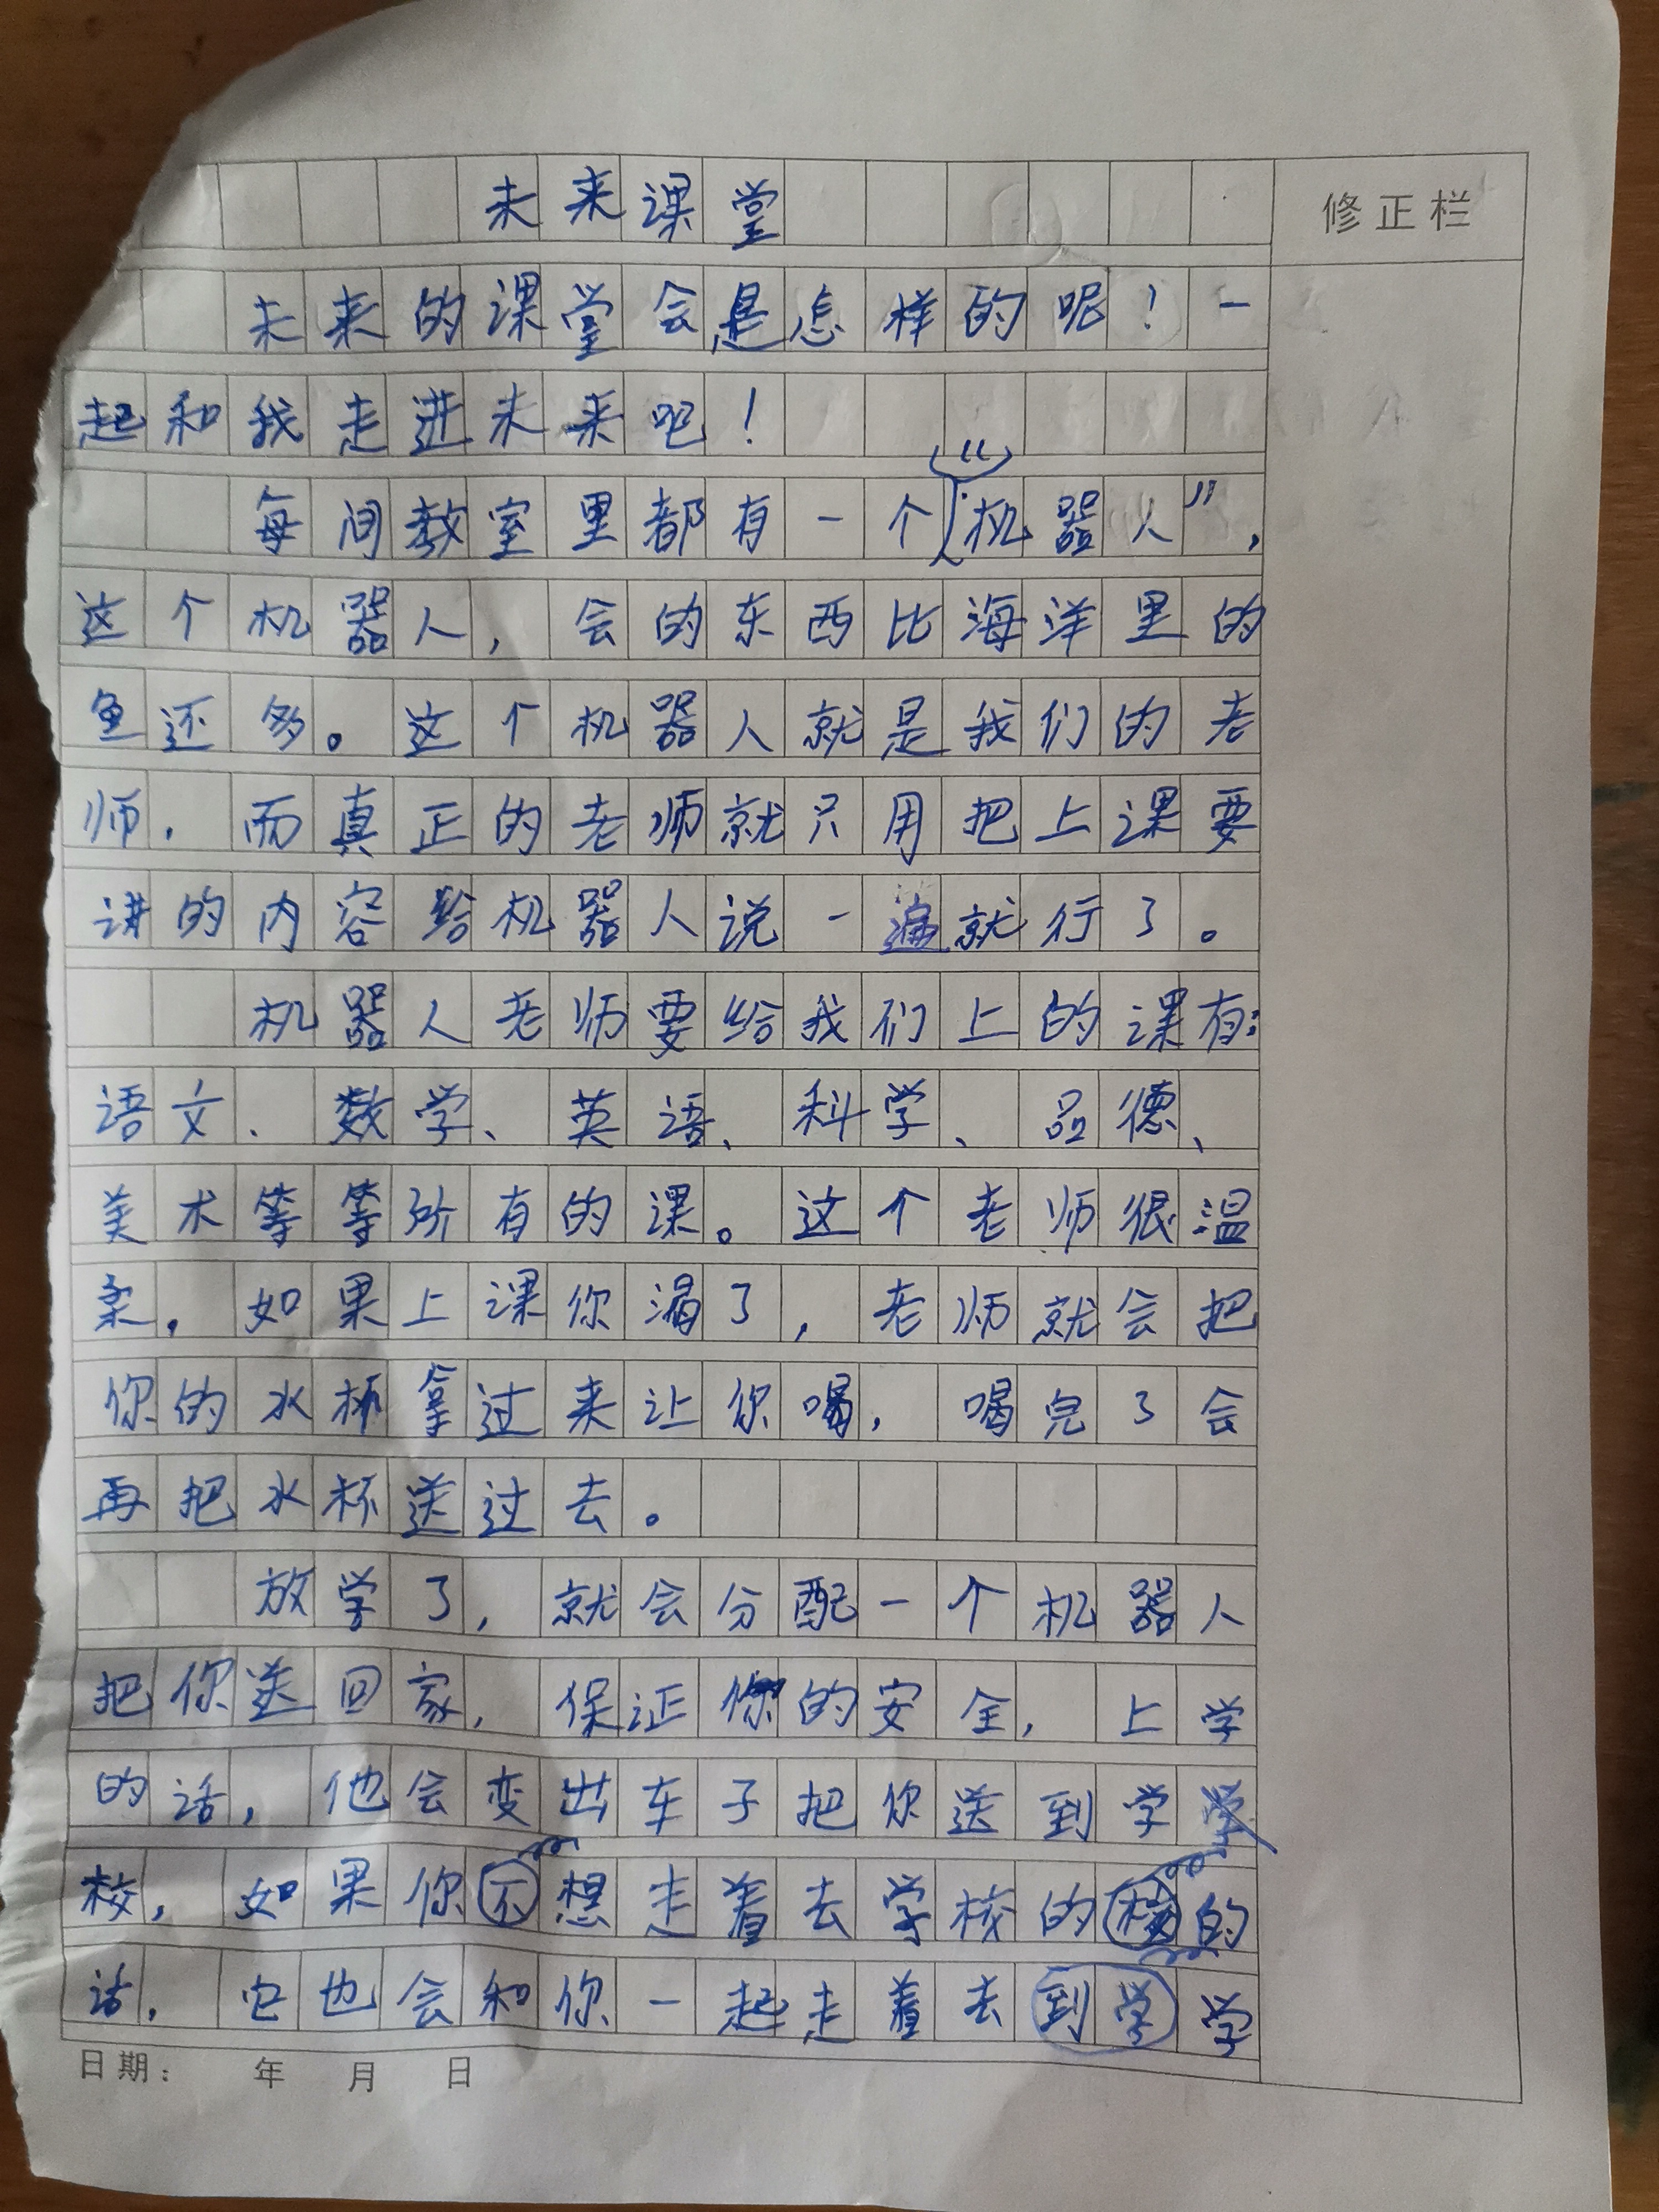 未来课堂
修正栏
未来的课堂会是怎样的呢！一
起和我走进未来吧！
每间教室里都有一个“机器人”，
这个机器人，会的东西比海洋里的
鱼还多。这个机器人就是我们的老
师，而真正的老师就只用把上课要
讲的内容给机器人说一遍就行了。
机器人老师要给我们上的课有：
语文、数学、英语、科学、品德、
美术等等所有的课。这个老师很温
柔，如果上课你渴了，老师就会把
你的水杯拿过来让你喝，喝完了会
再把水杯送过去。
放学了，就会分配一个机器人
把你送回家，保证你的安全，上学
的话，他会变出车子把你送到学
校，如果你不想走着去学校的校的
话，它也会和你一起走着去到学学
日期： 年 月 日